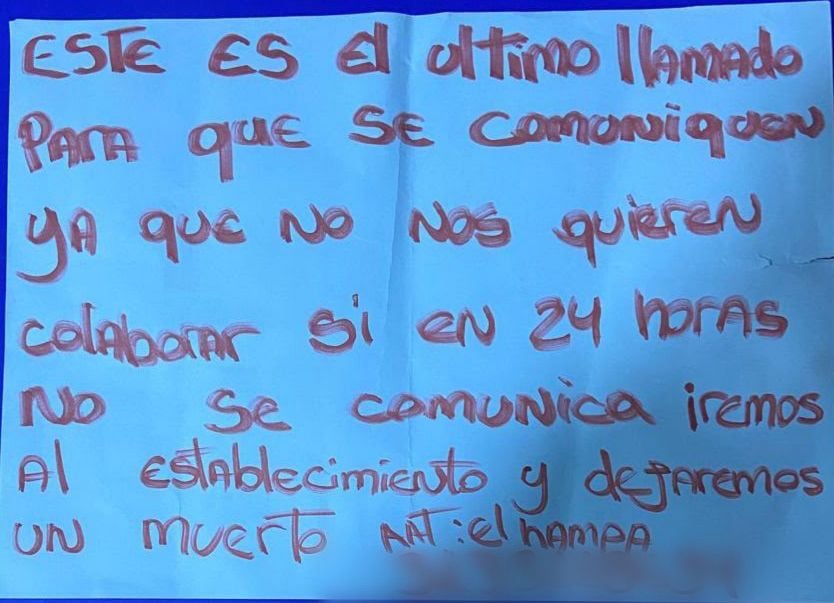 ESTE ES El ultimo llAMAdo
PARA quE SE comuniquEN
yA quE No Nos quierEN
colAborAr Si EN 24 horAs
No Se comuNica iremos
Al EstAblecimieNto y dejAremos
UN muerto AAT: el hAmpA